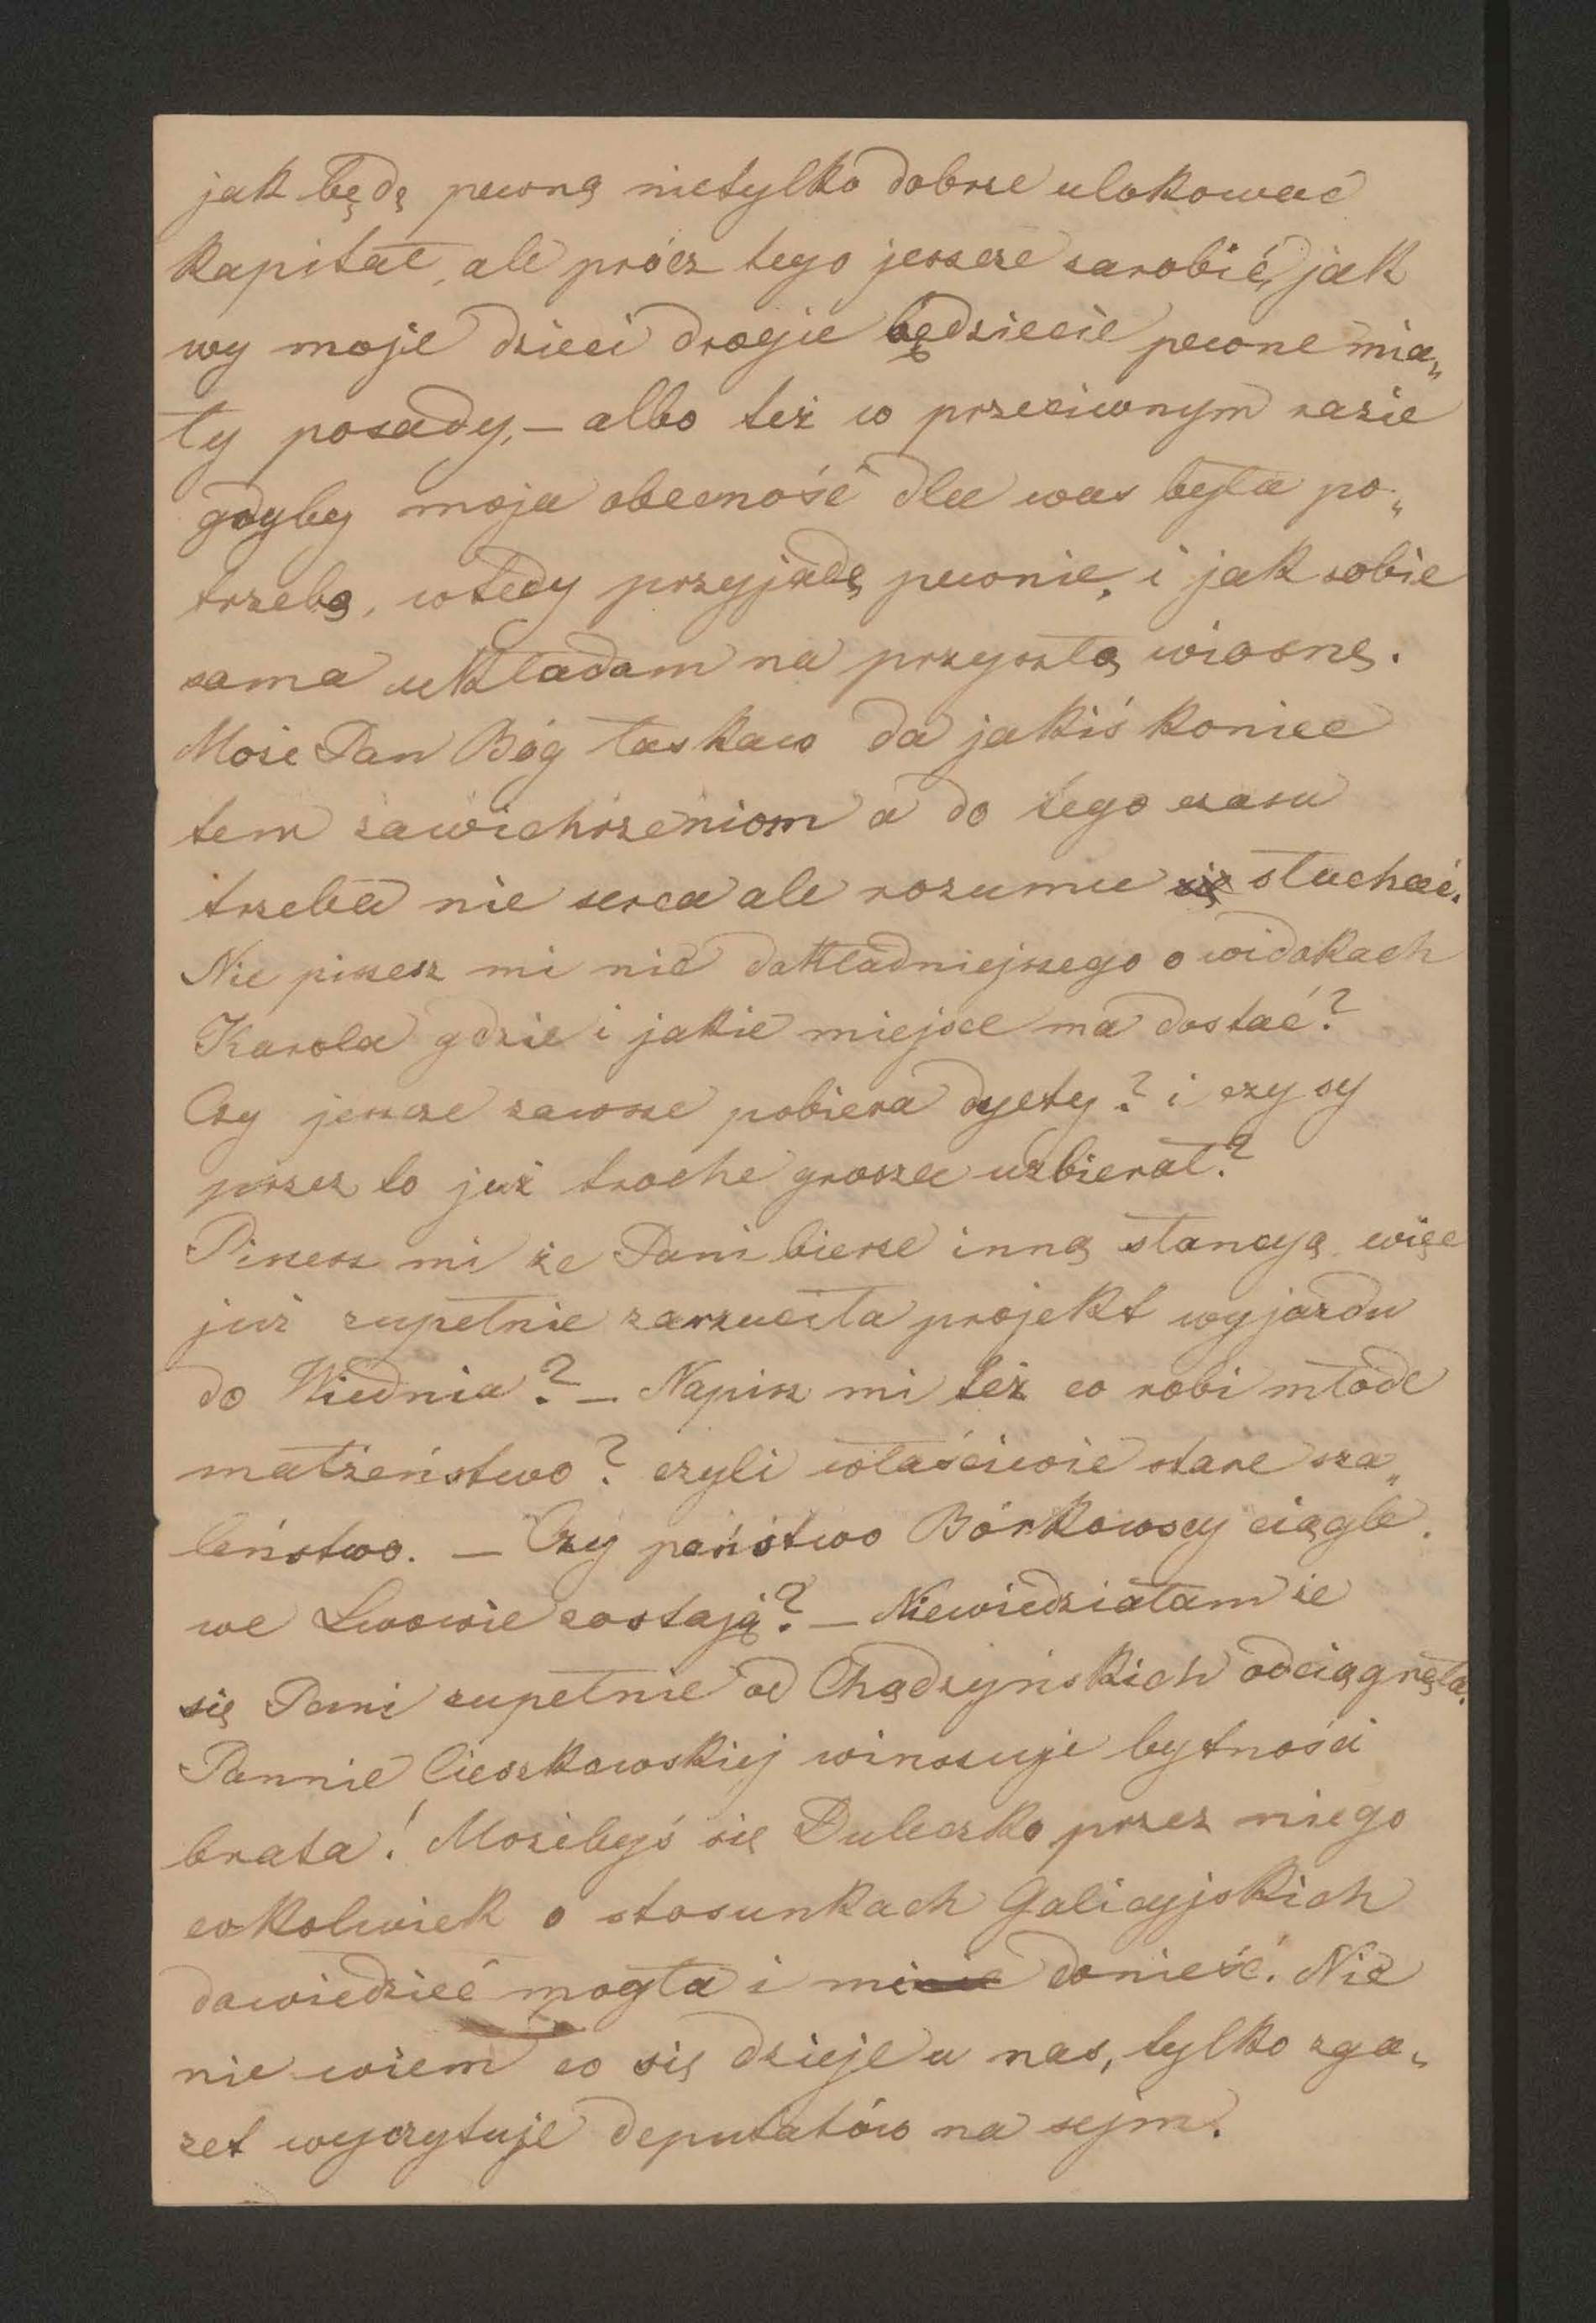 jak będę pewną nietylko dobrze ulokować
kapitał, ale prócz tego jeszcze zarobić, jak
wy moje dzieci drogie będziecie pewne mia„
ły posady, – albo też w przeciwnym razie
gdyby moja obecność dla was była po„
trzebą, wtedy przyjadę pewnie, i jak sobie
sama układam na przyszłą wiosnę.
Może Pan Bóg łaskaw da jakiś koniec
tem zawichrzeniom a do tego czasu
trzeba nie serca ale rozumu się słuchać.
Nie piszesz mi nic dokładniejszego o widokach
Karola gdzie i jakie miejsce ma dostać?
Czy jeszcze zawsze pobiera dyety? i czy sy
przez to już troche grosza uzbierał?
Piszesz mi że Pani bierze inną stancyą więc
już zupełnie zarzuciła projekt wyjazdu
do Wiednia? – Napisz mi też co robi młode
małżeństwo? czyli właściwie stare sza„
leństwo. – Czy państwo Bórkowscy ciągle
we Lwowie zostają? – Niewiedziałam że
się Pani zupełnie od Chądzyńskich odciągnęła.
Pannie Cieszkowskiej winszuje bytności
brata! Możebyś się Duleczko przez niego
cokolwiek o stosunkach Galicyjskich
dowiedzieć mogła i mi donieść. Nic
nie wiem co się dzieje u nas, tylko zga„
zet wyczytuje deputatów na sejm.